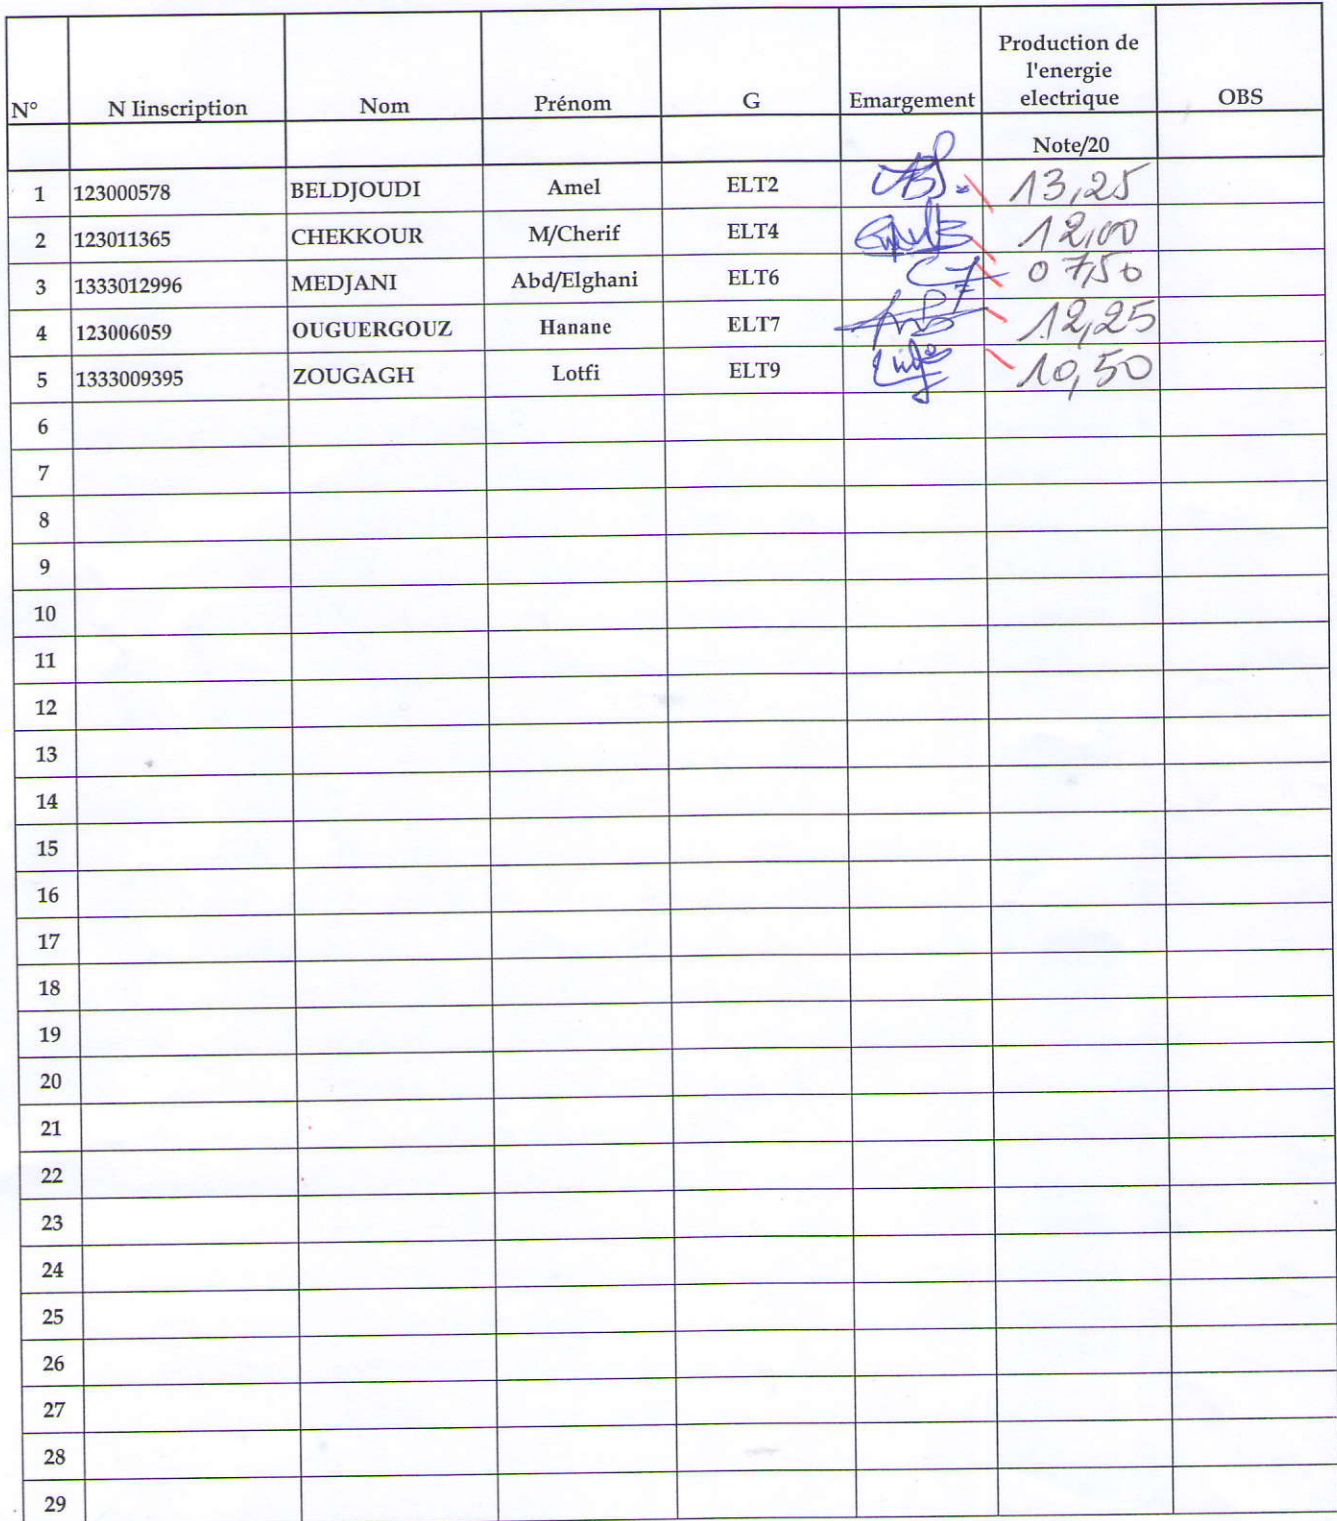 N° N Iinscription Nom Prénom G Emargement Production de l'energie electrique OBS
Note/20
1 123000578 BELDJOUDI Amel ELT2 13,25
2 123011365 CHEKKOUR M/Cherif ELT4 12,00
3 1333012996 MEDJANI Abd/Elghani ELT6 07,50
4 123006059 OUGUERGOUZ Hanane ELT7 12,25
5 1333009395 ZOUGAGH Lotfi ELT9 10,50
6
7
8
9
10
11
12
13
14
15
16
17
18
19
20
21
22
23
24
25
26
27
28
29